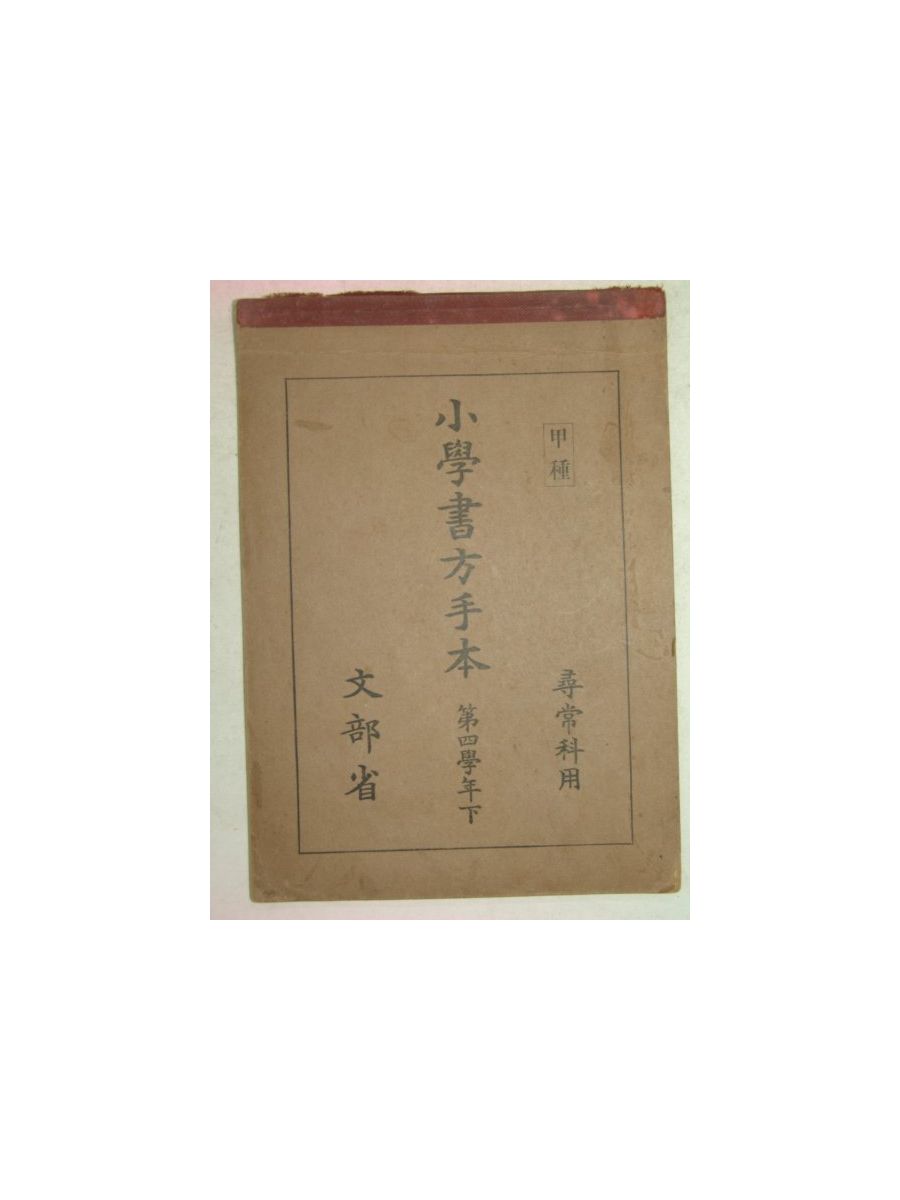 甲種
尋常科用
小學書方手本
第四學年下
文部省